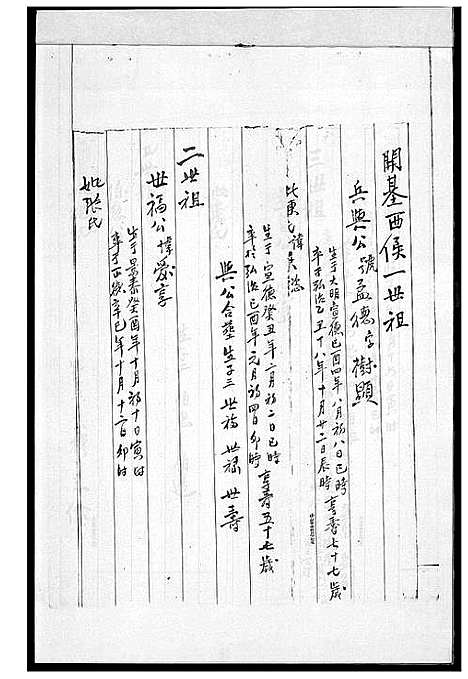 開基西侯一世祖
兵與公號孟德字樹顯
生于大明宣德己酉四年八月初八日巳時
卒于弘治乙丑十八年十月廿二日辰時享壽七十七歲
妣 氏諱 慈
生于宣德癸丑年二月初二日巳時
卒於弘治己酉年元月初四日卯時享壽五十七歲
與公合葬生子三世福世祿世壽
二世祖
世福公諱愛享
生于景泰癸酉年十月初十日寅時
卒于正德辛巳年十月十二日卯時
妣張氏